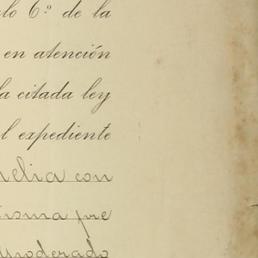 ulo 6.º de la
en atención
la citada ley
l expediente
elia con
isma pre
poderado